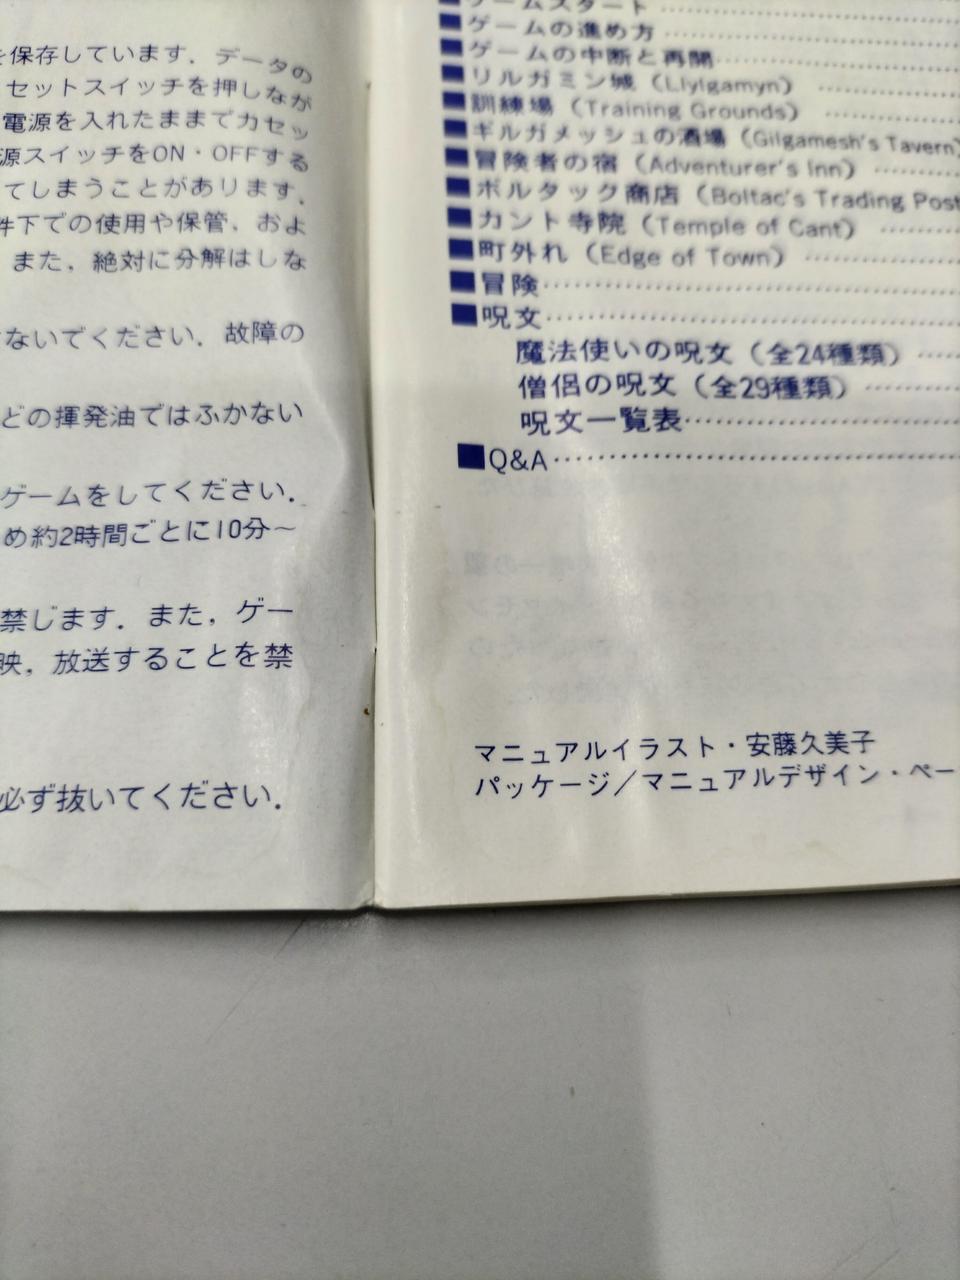 を保存しています．データの
セットスイッチを押しなが
電源を入れたままでカセッ
源スイッチをON・OFFする
てしまうことがあります．
件下での使用や保管，およ
また，絶対に分解はしな
ないでください．故障の
どの揮発油ではふかない
ゲームをしてください．
め約2時間ごとに10分～
禁じます．また，ゲー
映，放送することを禁
必ず抜いてください．
■ゲームスタート
■ゲームの進め方
■ゲームの中断と再開
■リルガミン城（Llylgamyn）
■訓練場（Training Grounds）
■ギルガメッシュの酒場（Gilgamesh's Tavern）
■冒険者の宿（Adventurer's Inn）
■ボルタック商店（Boltac's Trading Post
■カント寺院（Temple of Cant）
■町外れ（Edge of Town）
■冒険
■呪文
魔法使いの呪文（全24種類）
僧侶の呪文（全29種類）
呪文一覧表
■Q&A
マニュアルイラスト・安藤久美子
パッケージ／マニュアルデザイン・ベー